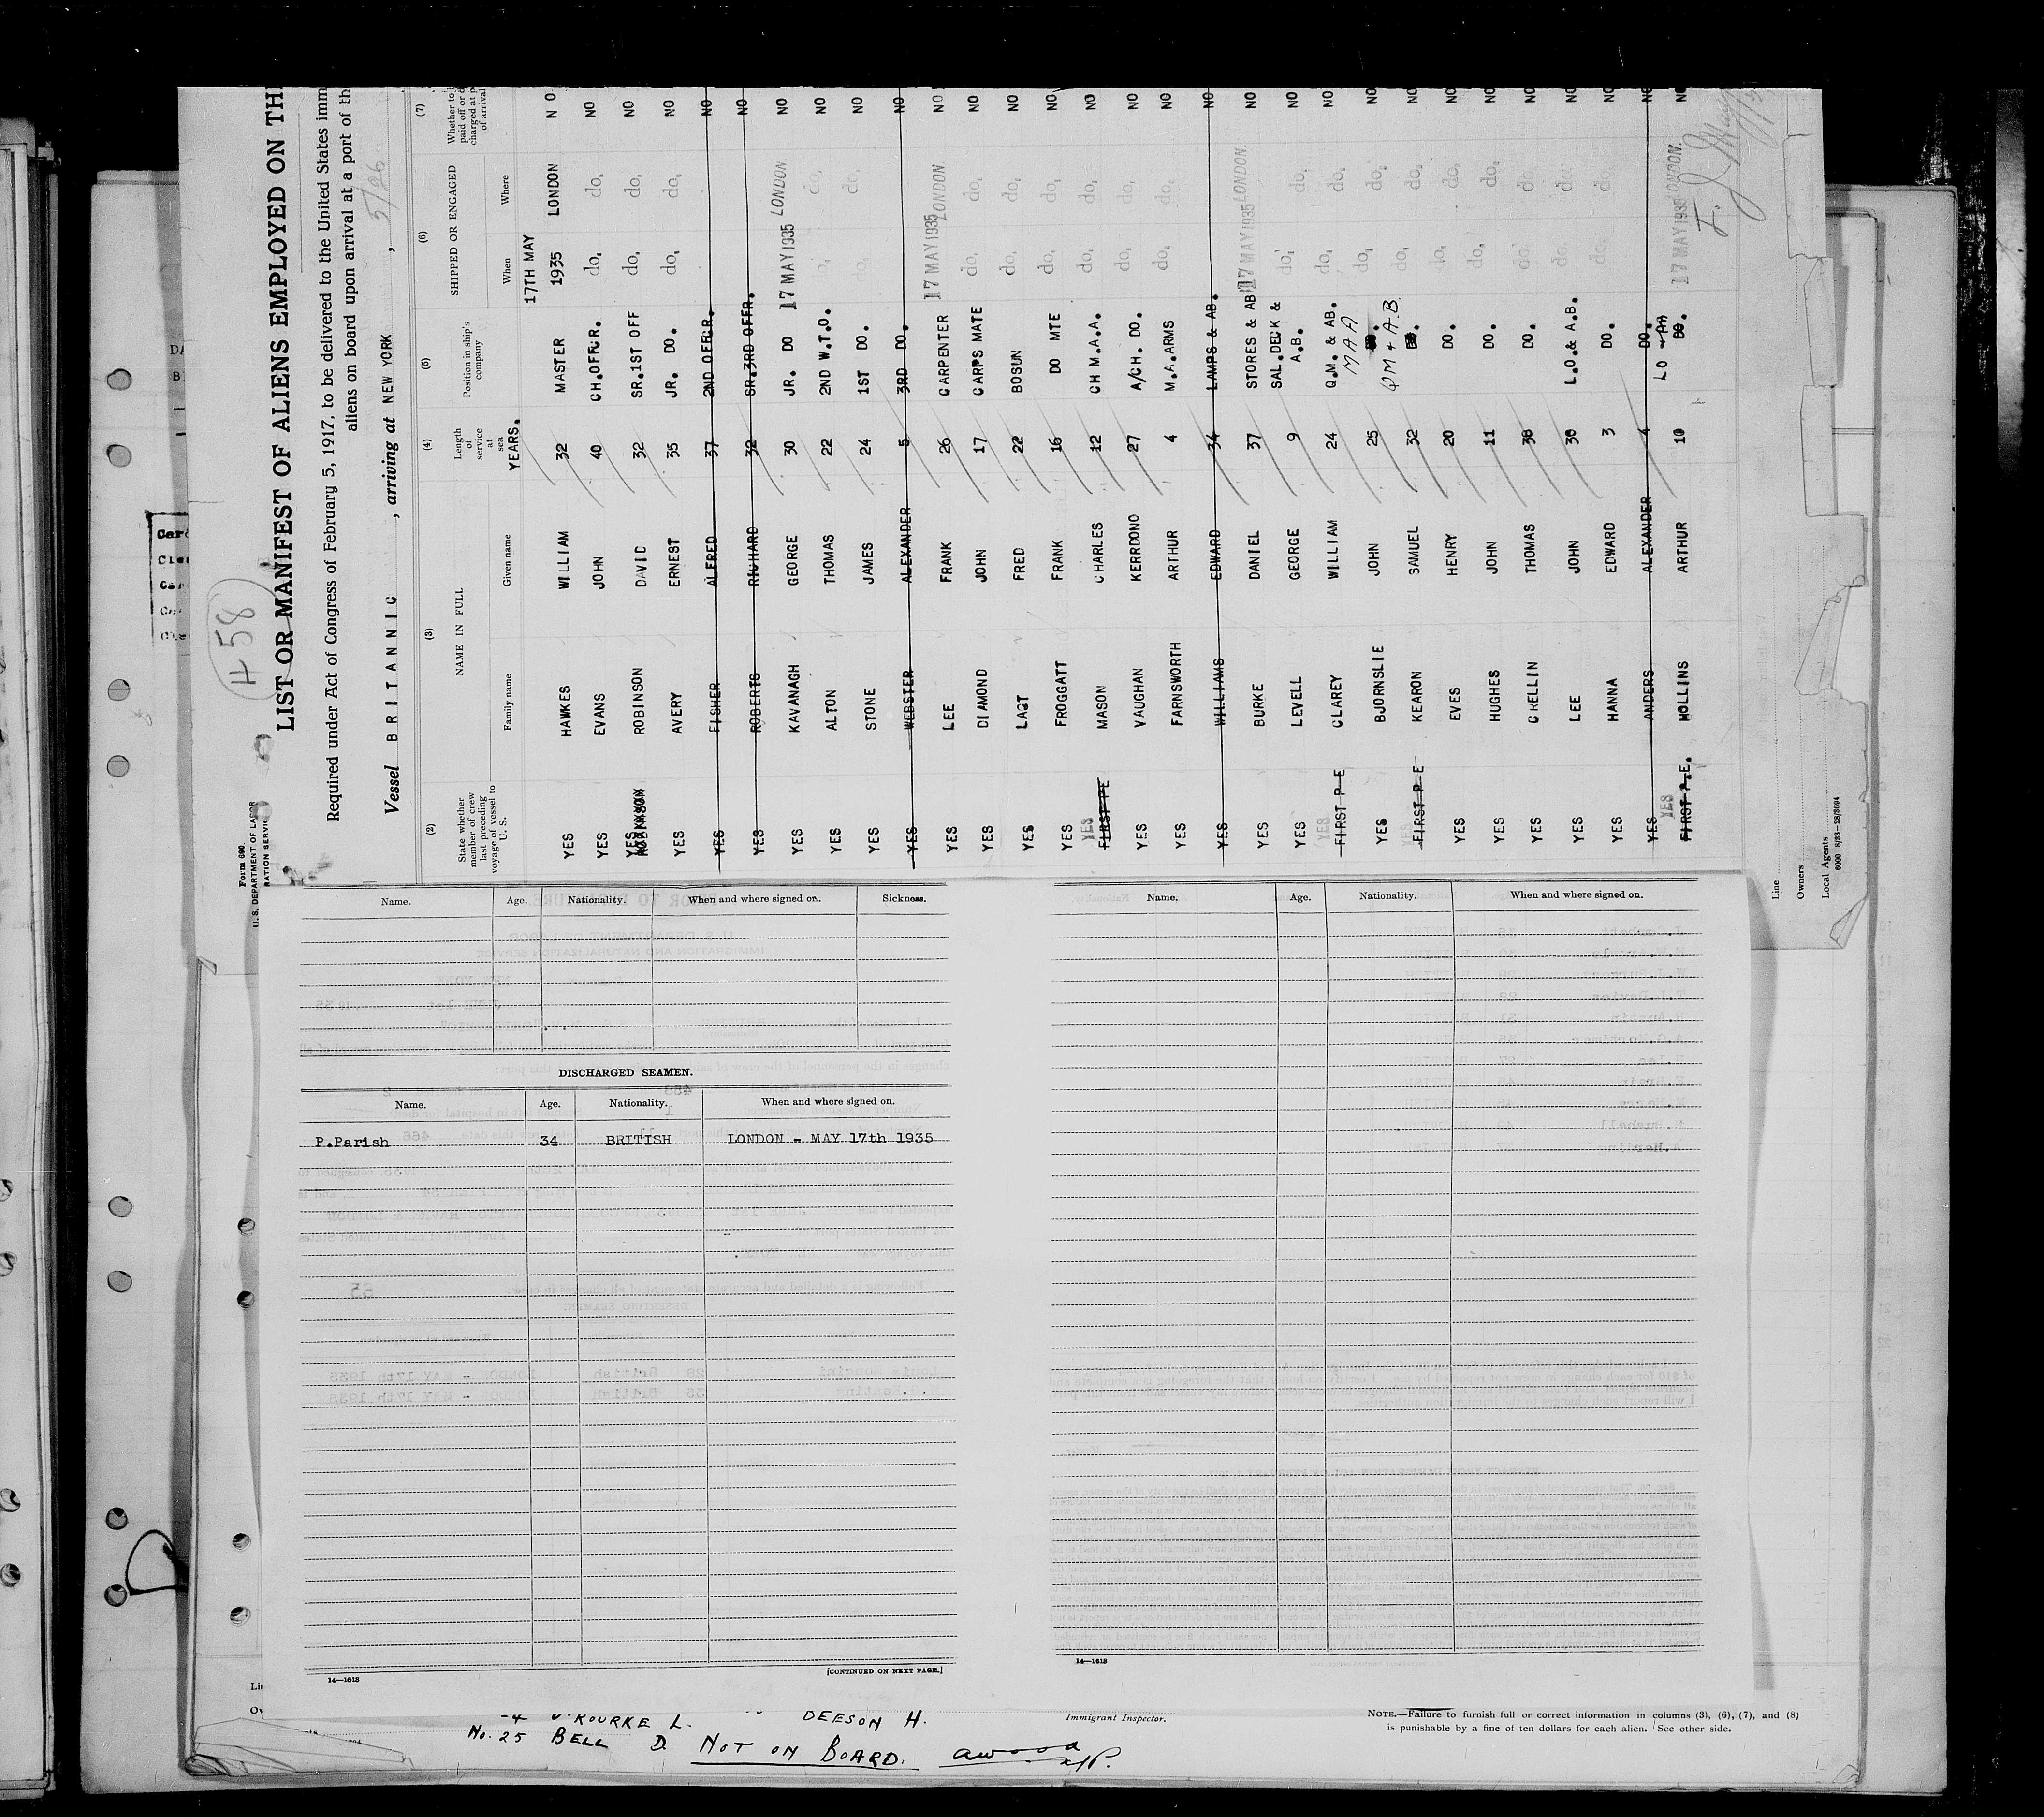 458
LIST OR MANIFEST OF ALIENS EMPLOYED ON TH
Required under Act of Congress of February 5, 1917, to be delivered to the United States imm
aliens on board upon arrival at a port of the
Vessel BRITANNIC , arriving at NEW YORK , 5/26
Form 690
U. S. DEPARTMENT OF LABOR
RATION SERVIC
(2) (3) (4) (5) (6) (7)
State whether member of crew last preceding voyage of vessel to U. S.
NAME IN FULL
Family name Given name
Length of service at sea
YEARS.
Position in ship's company
SHIPPED OR ENGAGED
When Where
Whether to
paid off or d
charged at p
of arrival
YES HAWKES WILLIAM 32 MASTER 17TH MAY 1935 LONDON NO
YES EVANS JOHN 40 CH.OFFCR. do, do, NO
YES ROBINSON DAVID 32 SR.1ST OFF do, do, NO
YES AVERY ERNEST 35 JR. DO. do, do, NO
YES FISHER ALFRED 37 2ND OFFCR. NO
YES ROBERTS RICHARD 32 SR.3RD OFFR. NO
YES KAVANAGH GEORGE 30 JR. DO 17 MAY 1935 LONDON NO
YES ALTON THOMAS 22 2ND W.T.O. do, NO
YES STONE JAMES 24 1ST DO. do, do, NO
YES WEBSTER ALEXANDER 5 3RD DO. NO
YES LEE FRANK 26 CARPENTER 17 MAY 1935 LONDON NO
YES DIAMOND JOHN 17 CARPS MATE do, do, NO
YES LAGT FRED 22 BOSUN do, do, NO
YES FROGGATT FRANK 16 DO MTE do, do, NO
YES FIRST P E MASON CHARLES 12 CH M.A.A. do, do, NO
YES VAUGHAN KERRDONO 27 A/CH. DO. do, do, NO
YES FARNSWORTH ARTHUR 4 M.A.ARMS do, do, NO
YES WILLIAMS EDWARD 34 LAMPS & AB. NO
YES BURKE DANIEL 37 STORES & AB 17 MAY 1935 LONDON. NO
YES LEVELL GEORGE 9 SAL.DECK & A.B. do, do, NO
YES FIRST P E CLAREY WILLIAM 24 Q.M. & AB. do, do, NO
YES BJORNSLIE JOHN 25 DO. MAA do, do, NO
YES FIRST P E KEARON SAMUEL 32 DO. QM & A.B do, do, NO
YES EVES HENRY 20 DO. do, do, NO
YES HUGHES JOHN 11 DO. do, do, NO
YES CRELLIN THOMAS 38 DO. do, do, NO
YES LEE JOHN 30 L.O.& A.B. do, do, NO
YES HANNA EDWARD 3 DO. do, do, NO
YES ANDERS ALEXANDER 4 DO. NO
YES FIRST P.E. HOLLINS ARTHUR 10 DO. LO 17 MAY 1935 LONDON. NO
Line
Owners
Local Agents
6000 8/33—28/3694
Name. Age. Nationality. When and where signed on. Sickness.
DISCHARGED SEAMEN.
Name. Age. Nationality. When and where signed on.
P.Parish 34 BRITISH LONDON - MAY 17th 1935
[CONTINUED ON NEXT PAGE.]
14—1613
Name. Age. Nationality. When and where signed on.
14—1613
O'ROURKE L. DEESON H.
No. 25 BELL D. NOT ON BOARD.
Immigrant Inspector.
NOTE.—Failure to furnish full or correct information in columns (3), (6), (7), and (8)
is punishable by a fine of ten dollars for each alien. See other side.